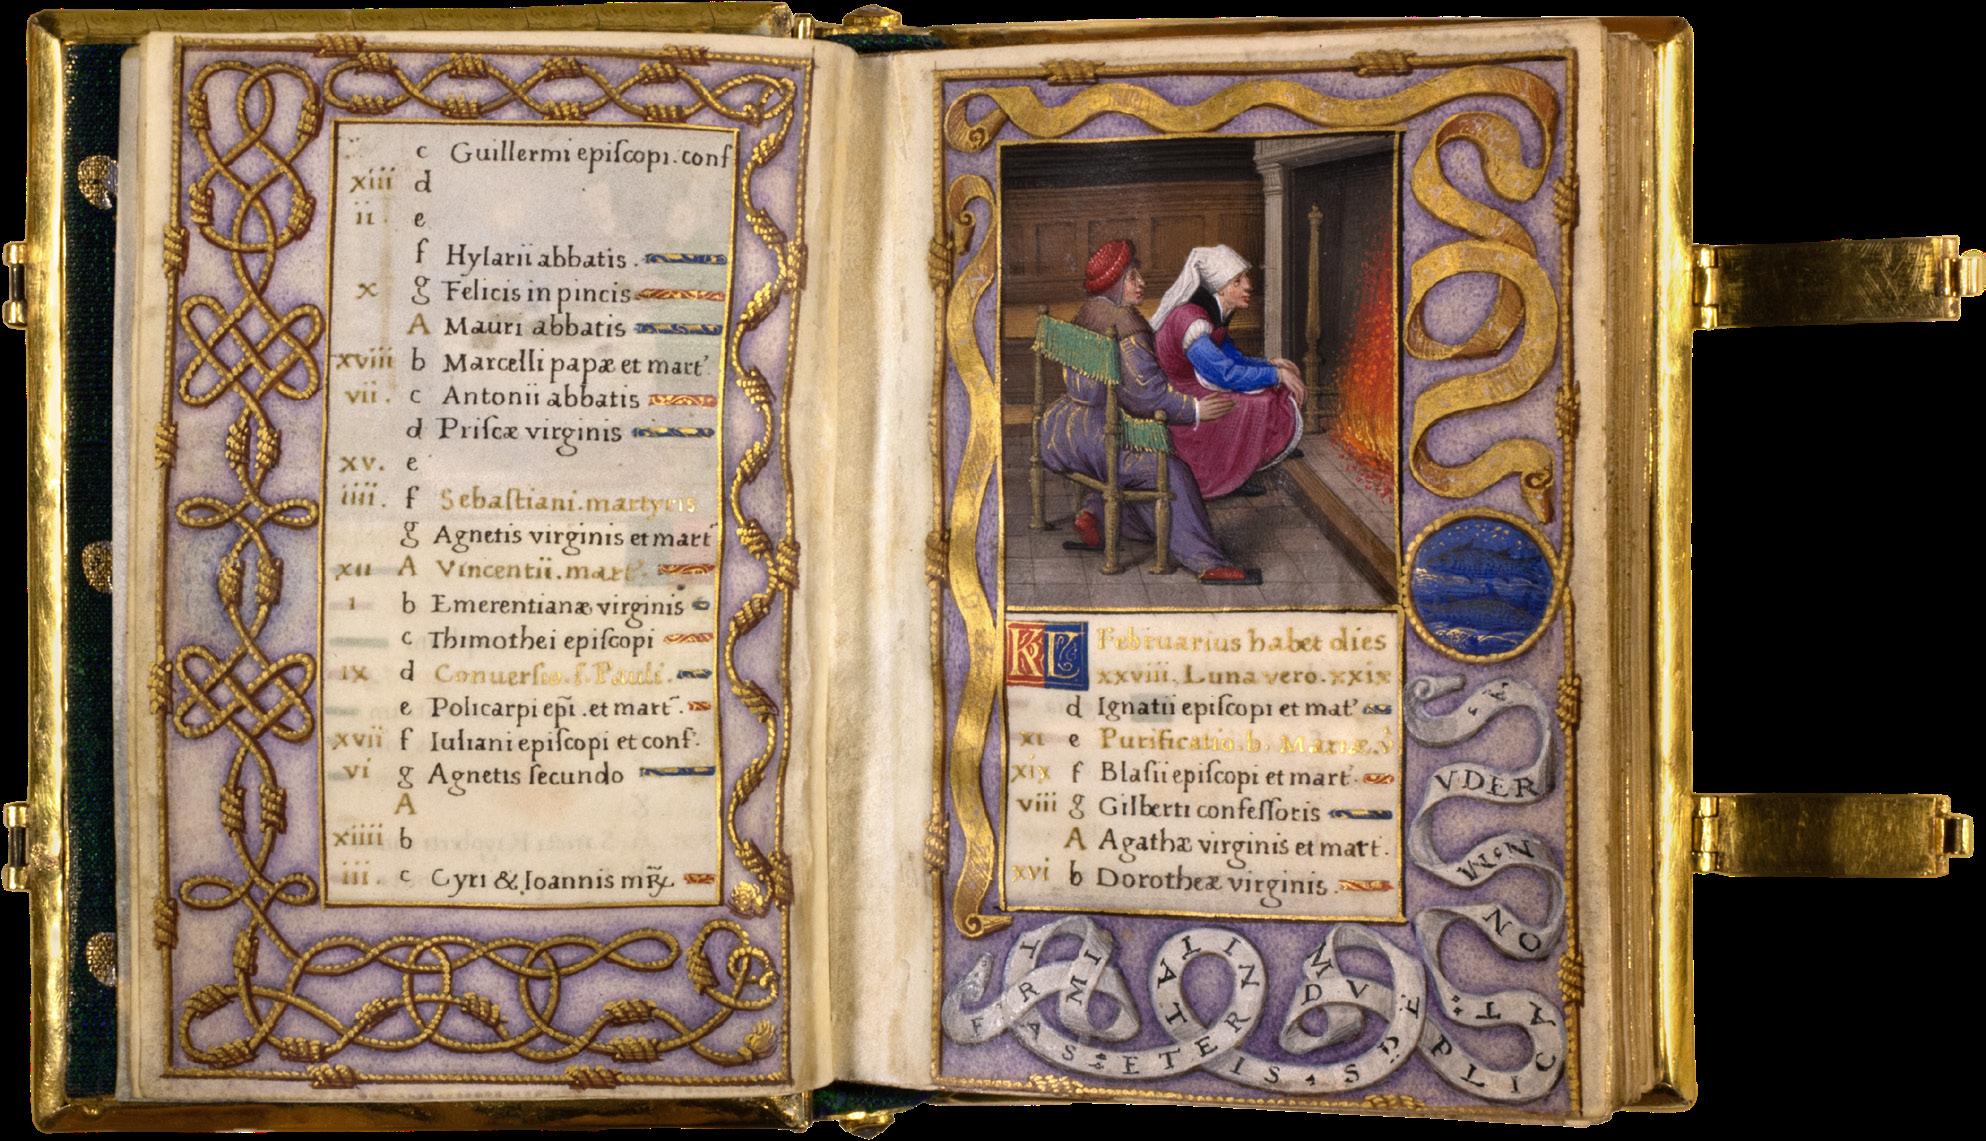 c Guillermi epiſcopi. conf
xiii d
ii . e
f Hylarii abbatis .
x g Felicis in pincis
A Mauri abbatis
xviii b Marcelli papæ et mart'
vii . c Antonii abbatis
d Priſcæ virginis
xv. e
iiii. f Sebaſtiani . martyris
g Agnetis virginis et mart
xii A Vincentii . mart'.
i b Emerentianæ virginis
c Thimothei epiſcopi
ix d Conuerſio . ſ . Pauli .
e Policarpi epī . et mart'.
xvii f Iuliani epiſcopi et conf'.
vi g Agnetis ſecundo
A
xiiii b
iii . c Cyri & Ioannis mr̃ꝝ
KL Februarius habet dies
xxviii. Luna vero . xxix
d Ignatii epiſcopi et mat'
xi e Purificatio . b . Mariæ . v̓
xix f Blaſii epiſcopi et mart'
viii g Gilberti confeſſoris
A Agathæ virginis et mart .
xvi b Dorotheæ virginis .
FIRMITAS ETERNITATIS